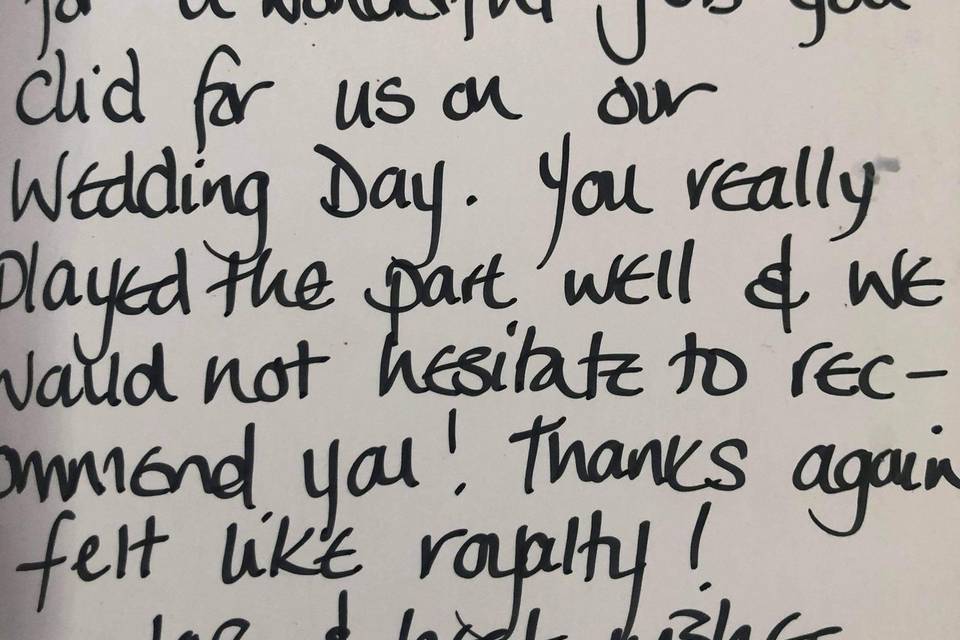 for a wonderful job you
did for us on our
Wedding Day. You really
played the part well & we
would not hesitate to rec-
ommend you! Thanks again
felt like royalty!
& best wishes